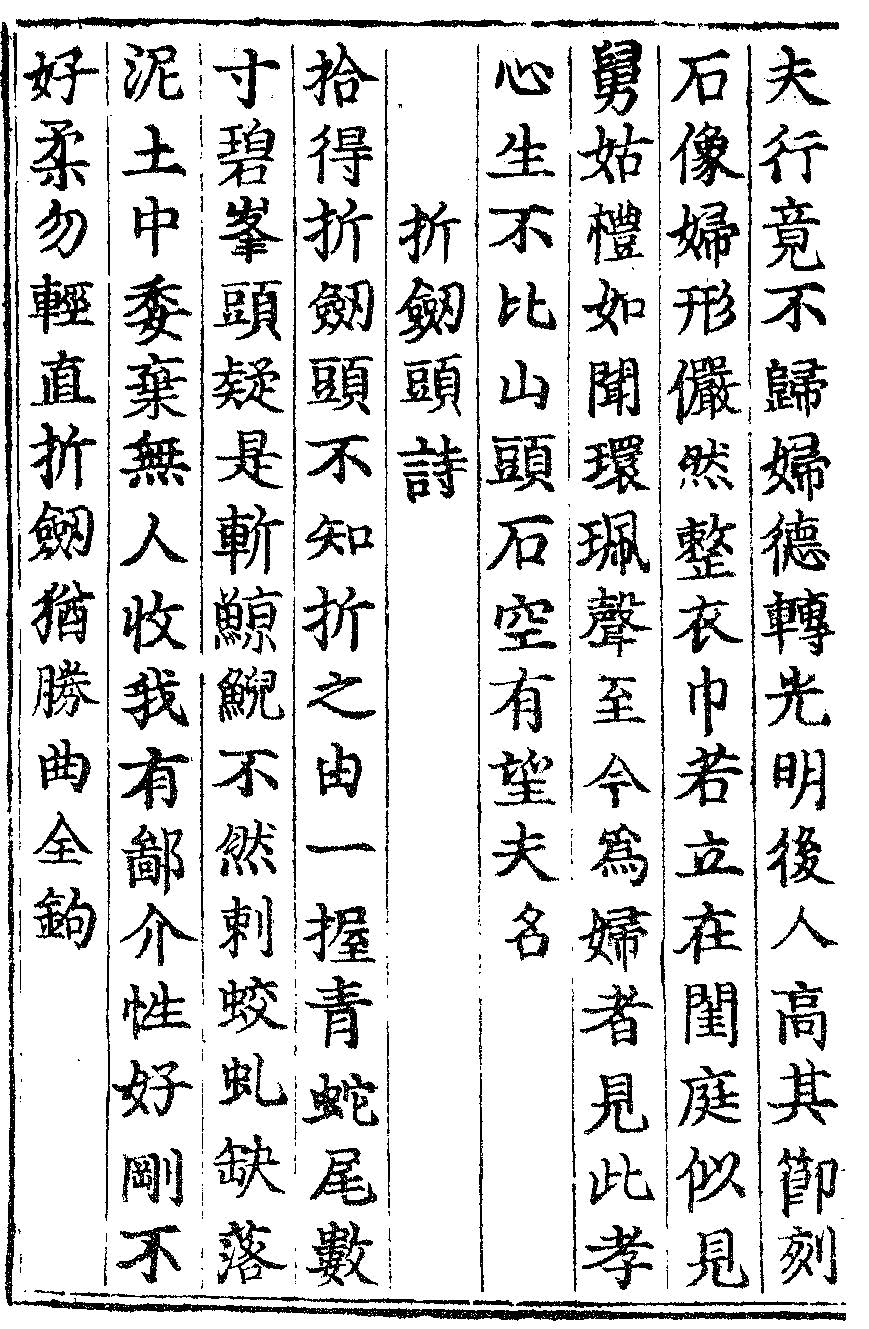 夫行竟不歸婦德轉光明後人高其節刻
石像婦形儼然整衣巾若立在閨庭似見
舅姑禮如聞環珮聲至今爲婦者見此孝
心生不比山頭石空有望夫名
折劒頭詩
拾得折劒頭不知折之由一握青蛇尾數
寸碧峯頭疑是斬鯨鯢不然刺蛟虬缺落
泥土中委棄無人收我有鄙介性好剛不
好柔勿輕直折劒猶勝曲全鉤